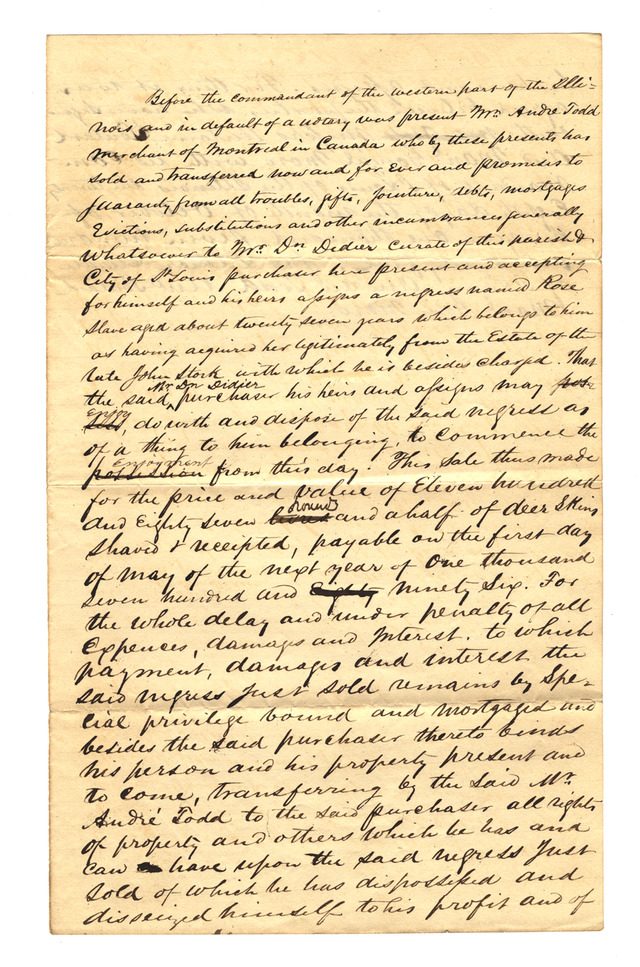 Before the commandant of the western part of the Illi-
nois and in default of a notary was present Mr. André Todd
merchant of Montreal in Canada who by these presents has
sold and transferred now and for Ever and promises to
Guaranty from all troubles, gifts, jointure, debts, mortgages
Evictions, substitutions and other incumbrances generally
whatsoever to Mr. Dn Didier Curate of this parish &
City of St Louis purchaser here present and accepting
for himself and his heirs assigns a negress named Rose
Slave aged about twenty seven years which belongs to him
as having acquired her legitimately from the Estate of the
late John Stork with which he is besides charged. That
Mr. Dn Didier
the said purchaser his heirs and assigns may
Enjoy
do with and dispose of the said negress as
of a thing to him belonging, to commence the
Enjoyment
possession from this day. This sale thus made
for the price and value of Eleven hundred
pounds
and Eighty seven livres and a half of deer Skins
Shaved & receipted, payable on the first day
of May of the next year of One thousand
seven hundred and Eighty ninety Six. For
the whole delay and under penalty of all
Expences, damages and Interest. to which
payment, damages and interest the
said negress Just sold remains by Spe-
cial privilege bound and mortgaged and
besides the said purchaser thereto binds
his person and his property present and
to come, transferring by the said Mr.
André Todd to the said purchaser all rights
of property and others which he has and
can have upon the said negress Just
sold of which he has dispossessed and
disseized himself to his profit and of